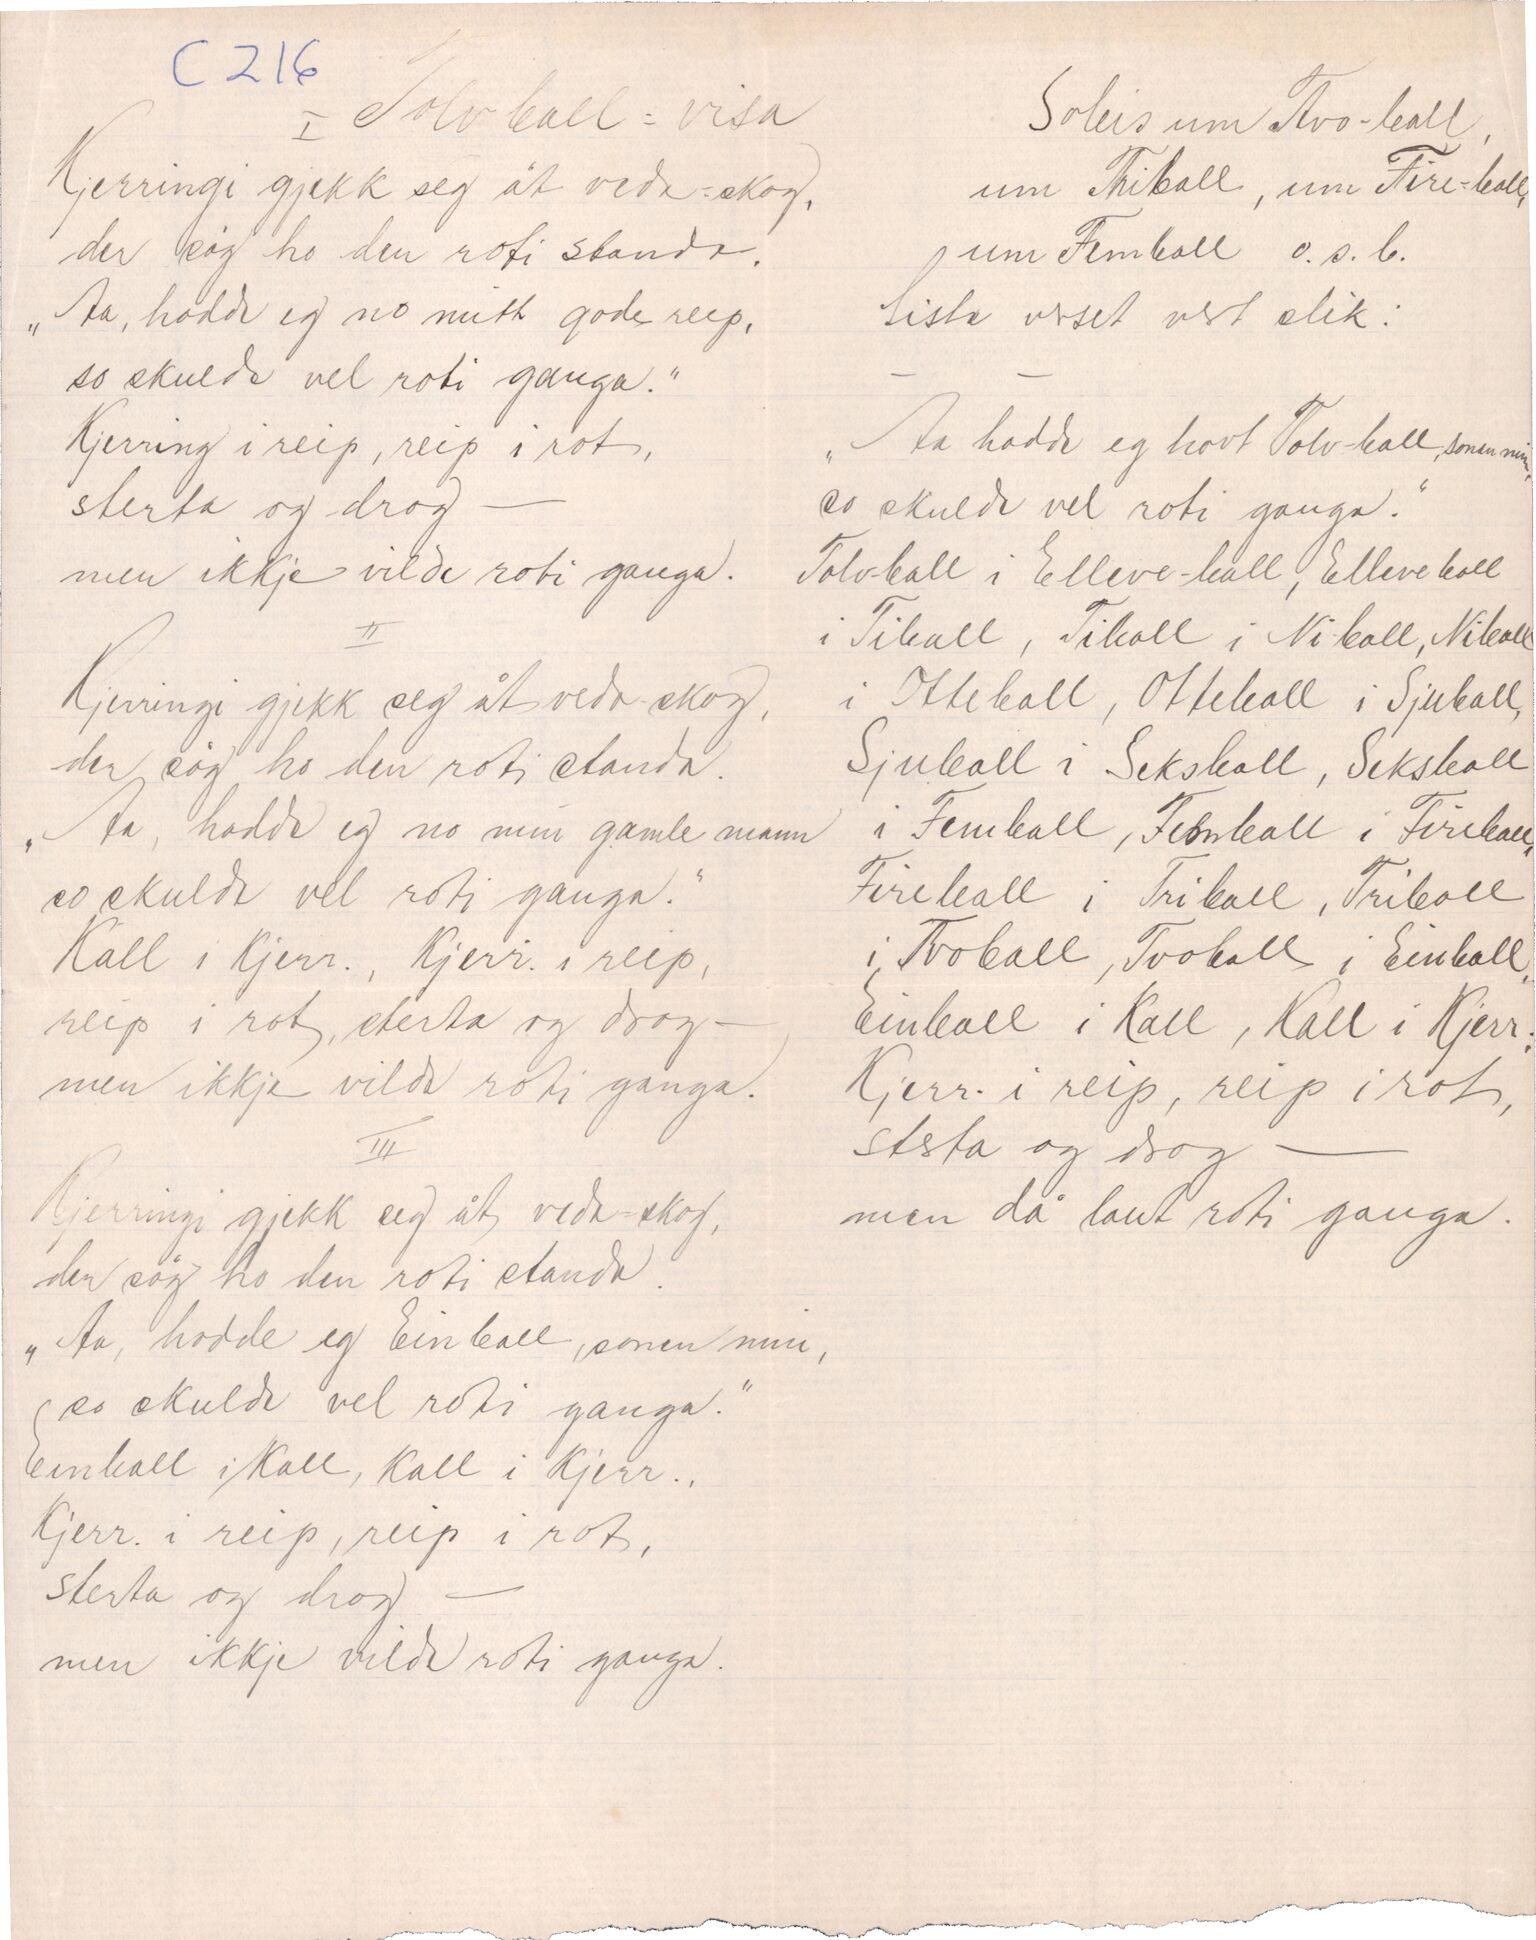 C 216
I Tolvkall-visa
Kjerringi gjekk seg åt veda-skog,
der såg ho den roti standa.
„Aa, hadde eg no mitt gode reip,
so skulde vel roti ganga."
Kjerring i reip, reip i rot,
sterta og drog —
men ikkje vilde roti ganga.
II
Kjerringi gjekk seg åt veda-skog,
der såg ho den roti standa.
„Aa, hadde eg no min gamle mann
so skulde vel roti ganga."
Kall i Kjerr., Kjerr. i reip,
reip i rot, sterta og drog —
men ikkje vilde roti ganga.
III
Kjerringi gjekk seg åt veda-skog,
der såg ho den roti standa.
„Aa, hadde eg Einkall, sonen min,
so skulde vel roti ganga."
Einkall i Kall, Kall i Kjerr.,
Kjerr. i reip, reip i rot,
sterta og drog —
men ikkje vilde roti ganga.
Soleis um Tvo-kall,
um Trikall, um Fire-kall,
um Femkall o.s.b.
Siste verset vert slik:
— —
„Aa hadde eg havt Tolv-kall, sonen min,
so skulde vel roti ganga."
Tolv-kall i Elleve-kall, Ellevekall
i Tikall, Tikall i Ni-kall, Nikall
i Ottekall, Ottekall i Sjukall,
Sjukall i Sekskall, Sekskall
i Femkall, Femkall i Firekall,
Firekall i Trikall, Trikall
i Tvokall, Tvokall i Einkall,
Einkall i Kall, Kall i Kjerr.
Kjerr. i reip, reip i rot,
sterta og drog —
men då laut roti ganga.